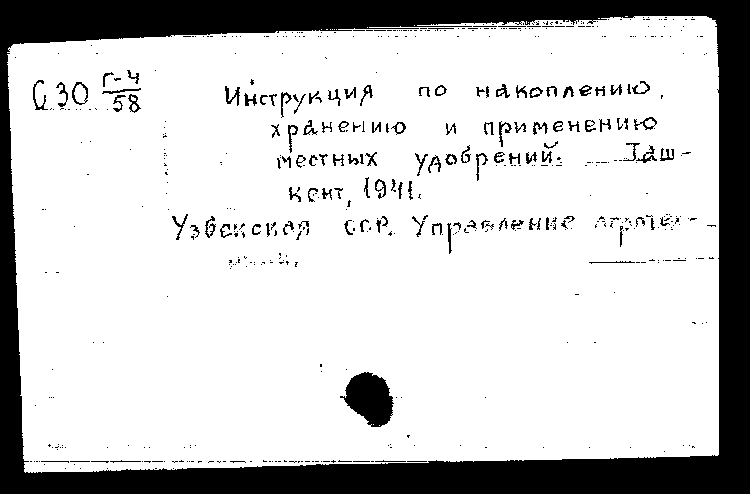 С30 Г-4/58
Инструкция по накоплению,
хранению и применению
местных удобрений. Таш-
кент, 1941.
Узбекская ССР. Управление агротех-